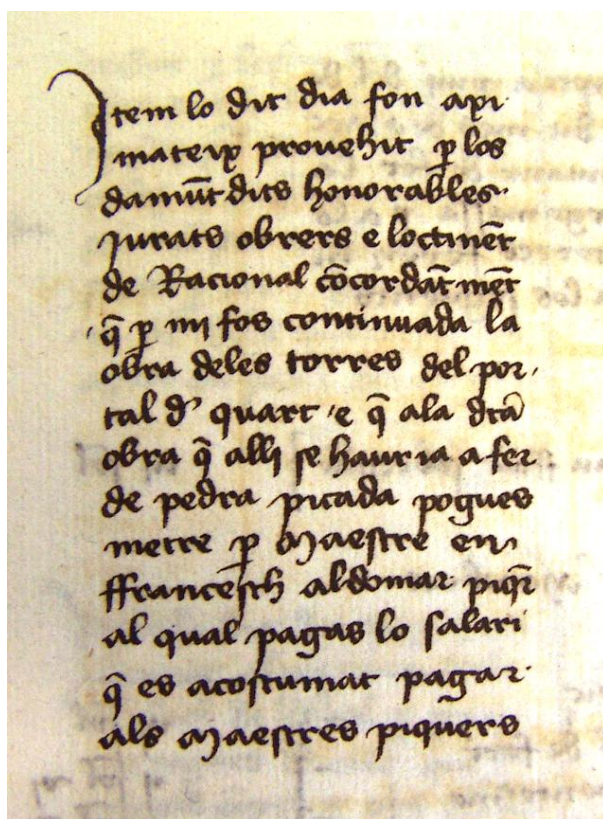 Item lo dit dia fon axi
mateix provehit p̱ los
damūt dits honorables
jurats obrers e loctinēt
de Racional cōcordāt mēt
q̄ p̱ mi fos continuada la
obra deles torres del por
tal d' quart · e q̄ ala dtā
obra q̄ alli se hauria a fer
de pedra picada pogues
metre p̱ Maestre en
ffrancesch aldomar piqr̄
al qual pagas lo salari
q̄ es acostumat pagar
als Maestres piquērs